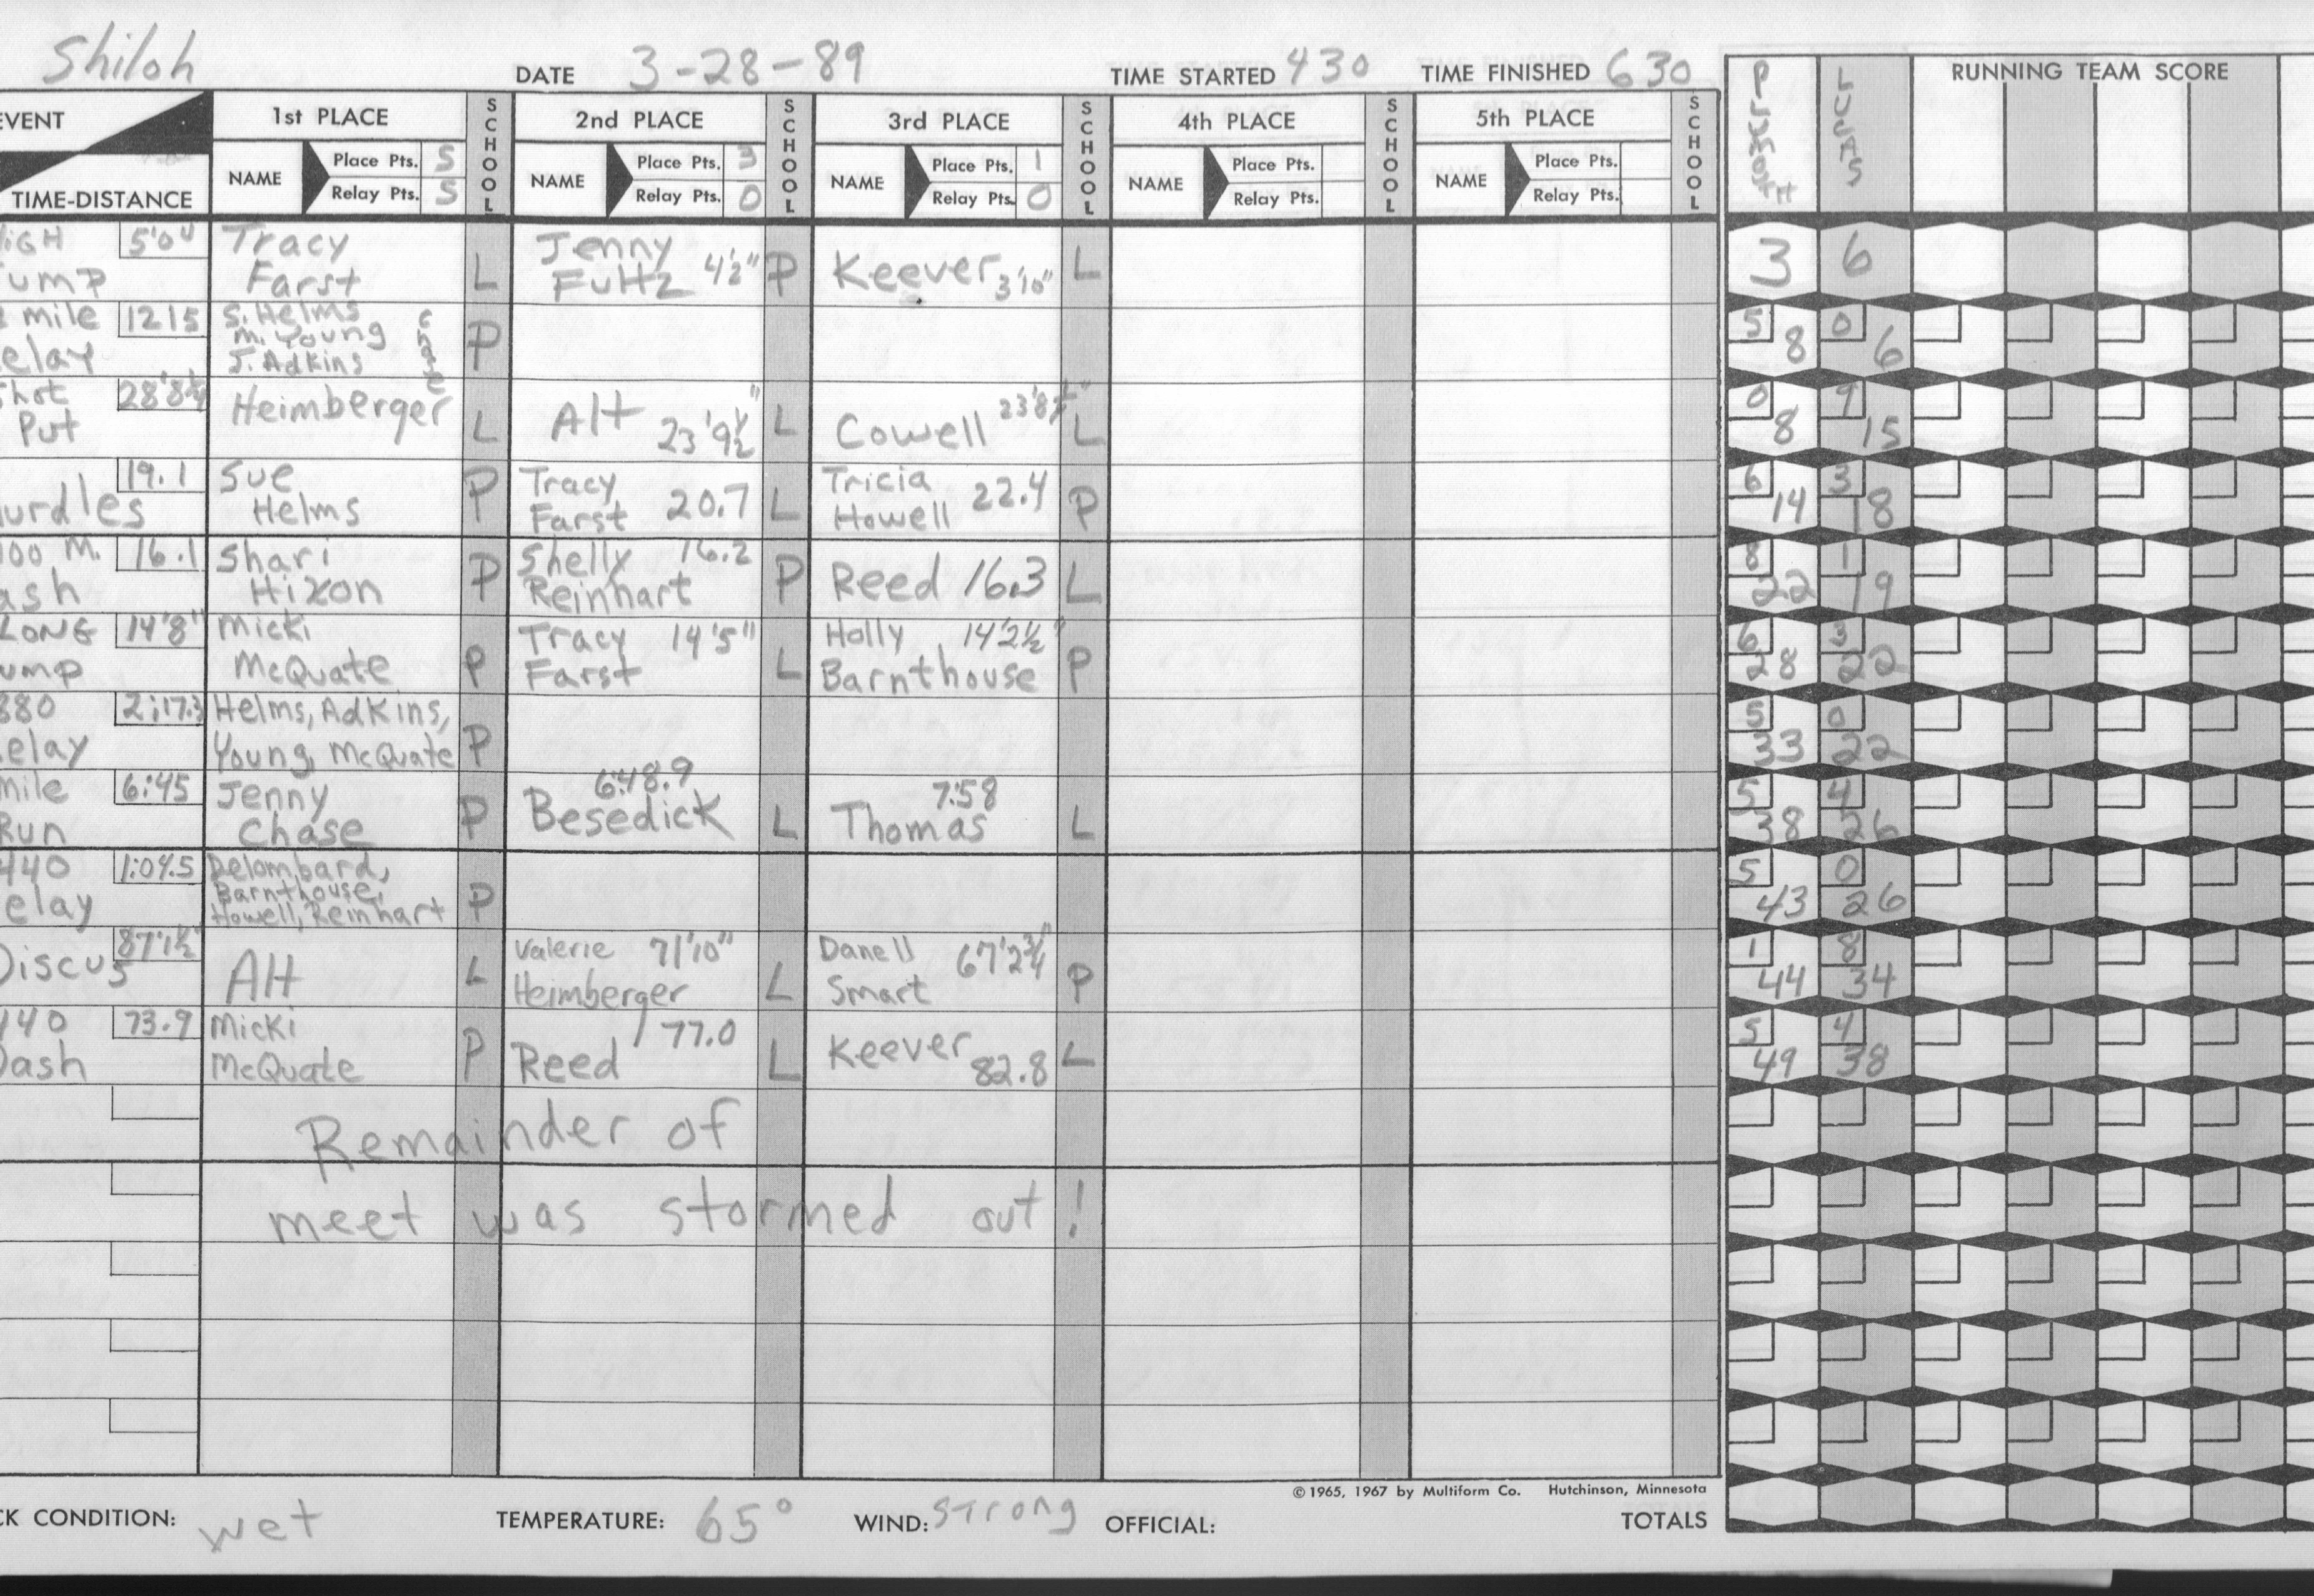 Shiloh
DATE 3-28-89 TIME STARTED 430 TIME FINISHED 630
EVENT
TIME-DISTANCE
1st PLACE SCHOOL 2nd PLACE SCHOOL 3rd PLACE SCHOOL 4th PLACE SCHOOL 5th PLACE SCHOOL
NAME Place Pts. 5 NAME Place Pts. 3 NAME Place Pts. 1 NAME Place Pts. NAME Place Pts.
Relay Pts. 5 Relay Pts. 0 Relay Pts. 0 Relay Pts. Relay Pts.
PLYMOUTH LUCAS RUNNING TEAM SCORE
HIGH 5'0" Tracy Jenny 4'2" Keever 3'10"
Jump Farst L Fultz P L 3 6
2 mile 1215 S. Helms Chase 5 0
Relay M. Young P 8 6
J. Adkins
Shot 28'8 1/4 Heimberger Alt 23'9 1/2" Cowell 23'8 1/2" 0 9
Put L L L 8 15
19.1 Sue Tracy 20.7 Tricia 22.4 6 3
Hurdles Helms P Farst L Howell P 14 18
100 M. 16.1 Shari Shelly 16.2 Reed 16.3 8 1
Dash Hixon P Reinhart P L 22 19
LONG 14'8" Micki Tracy 14'5" Holly 14'2 1/2" 6 3
Jump McQuate P Farst L Barnthouse P 28 22
880 2:17.3 Helms, Adkins, 5 0
Relay Young, McQuate P 33 22
Mile 6:45 Jenny 6:48.9 7:58 5 4
Run Chase P Besedick L Thomas L 38 26
440 1:04.5 Delombard, 5 0
Relay Barnthouse, P 43 26
Howell, Reinhart
Discus 87'1 1/2" Alt Valerie 71'10" Danell 67'2 3/4" 1 8
L Heimberger L Smart P 44 34
440 73.9 Micki 77.0 Keever 82.8 5 4
Dash McQuate P Reed L L 49 38
Remainder of
meet was stormed out!
©1965, 1967 by Multiform Co. Hutchinson, Minnesota
CK CONDITION: wet TEMPERATURE: 65° WIND: strong OFFICIAL: TOTALS